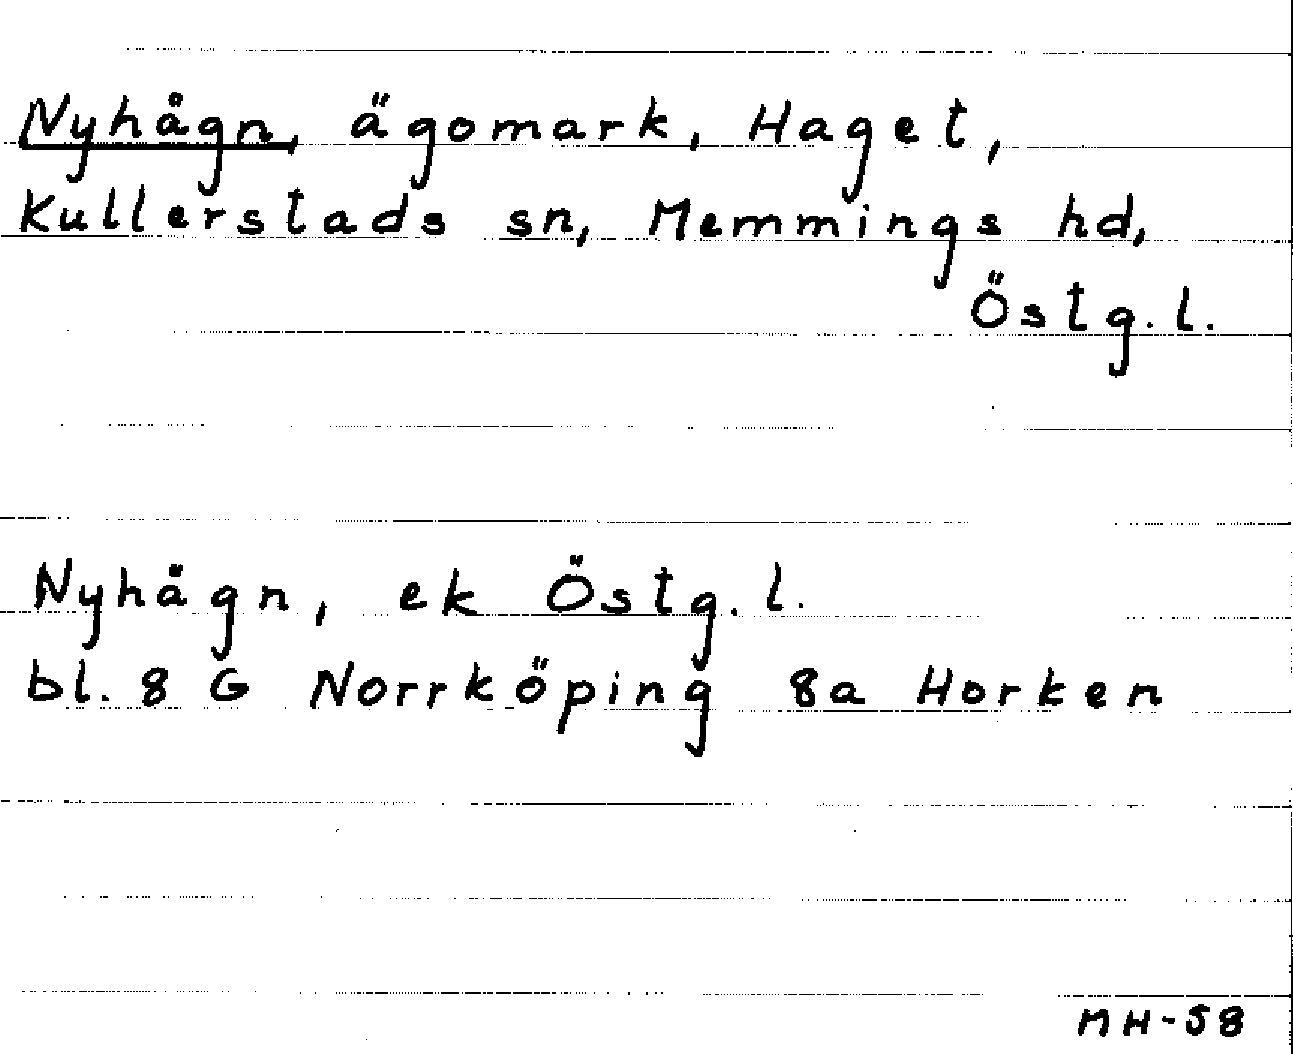 Nyhågn, ägomark, Haget,
Kullerstads sn, Memmings hd,
Östg. l.
Nyhågn, ek Östg. l.
bl. 8 G Norrköping 8a Horken
MH-58